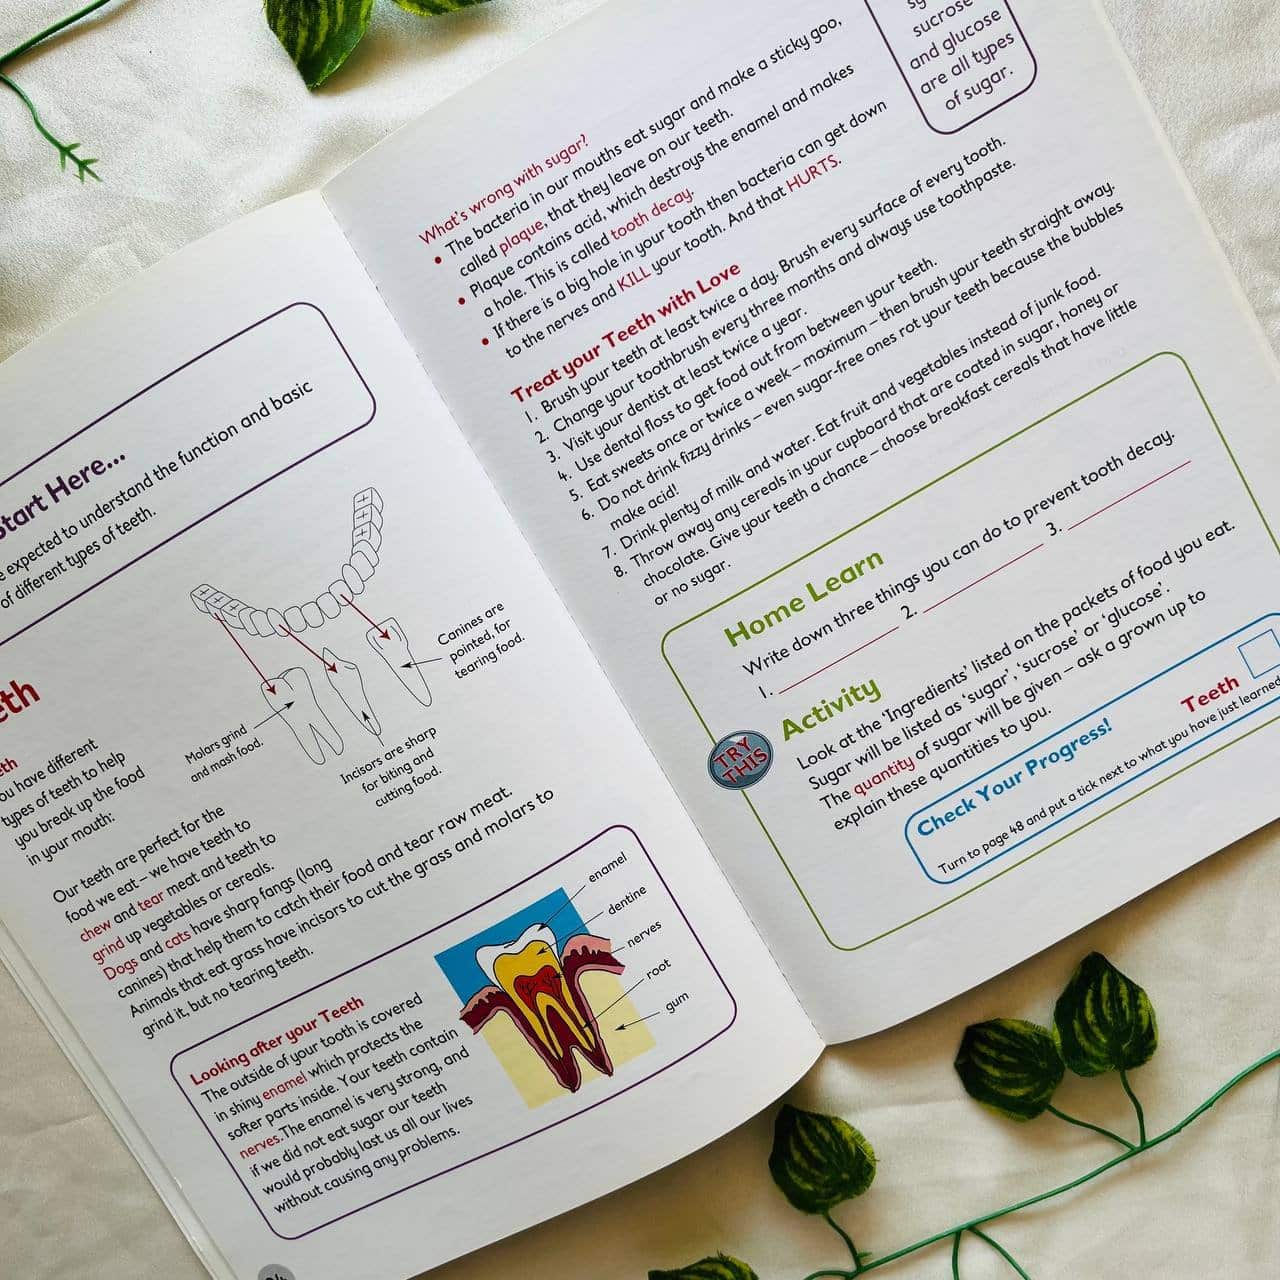 Start Here...
expected to understand the function and basic
of different types of teeth.
Canines are
pointed, for
tearing food.
Molars grind
and mash food.
Incisors are sharp
for biting and
cutting food.
have different
types of teeth to help
you break up the food
in your mouth:
Our teeth are perfect for the
food we eat – we have teeth to
chew and tear meat and teeth to
grind up vegetables or cereals.
Dogs and cats have sharp fangs (long
canines) that help them to catch their food and tear raw meat.
Animals that eat grass have incisors to cut the grass and molars to
grind it, but no tearing teeth.
Looking after your Teeth
The outside of your tooth is covered
in shiny enamel which protects the
softer parts inside. Your teeth contain
nerves. The enamel is very strong, and
if we did not eat sugar our teeth
would probably last us all our lives
without causing any problems.
enamel
dentine
nerves
root
gum
sucrose
and glucose
are all types
of sugar.
What's wrong with sugar?
• The bacteria in our mouths eat sugar and make a sticky goo,
called plaque, that they leave on our teeth.
• Plaque contains acid, which destroys the enamel and makes
a hole. This is called tooth decay.
• If there is a big hole in your tooth then bacteria can get down
to the nerves and KILL your tooth. And that HURTS.
Treat your Teeth with Love
1. Brush your teeth at least twice a day. Brush every surface of every tooth.
2. Change your toothbrush every three months and always use toothpaste.
3. Visit your dentist at least twice a year.
4. Use dental floss to get food out from between your teeth.
5. Eat sweets once or twice a week – maximum – then brush your teeth straight away.
6. Do not drink fizzy drinks – even sugar-free ones rot your teeth because the bubbles
make acid!
7. Drink plenty of milk and water. Eat fruit and vegetables instead of junk food.
8. Throw away any cereals in your cupboard that are coated in sugar, honey or
chocolate. Give your teeth a chance – choose breakfast cereals that have little
or no sugar.
Home Learn
Write down three things you can do to prevent tooth decay.
1. 2. 3.
TRY
THIS
Activity
Look at the 'Ingredients' listed on the packets of food you eat.
Sugar will be listed as 'sugar', 'sucrose' or 'glucose'.
The quantity of sugar will be given – ask a grown up to
explain these quantities to you.
Check Your Progress!
Teeth
Turn to page 48 and put a tick next to what you have just learned